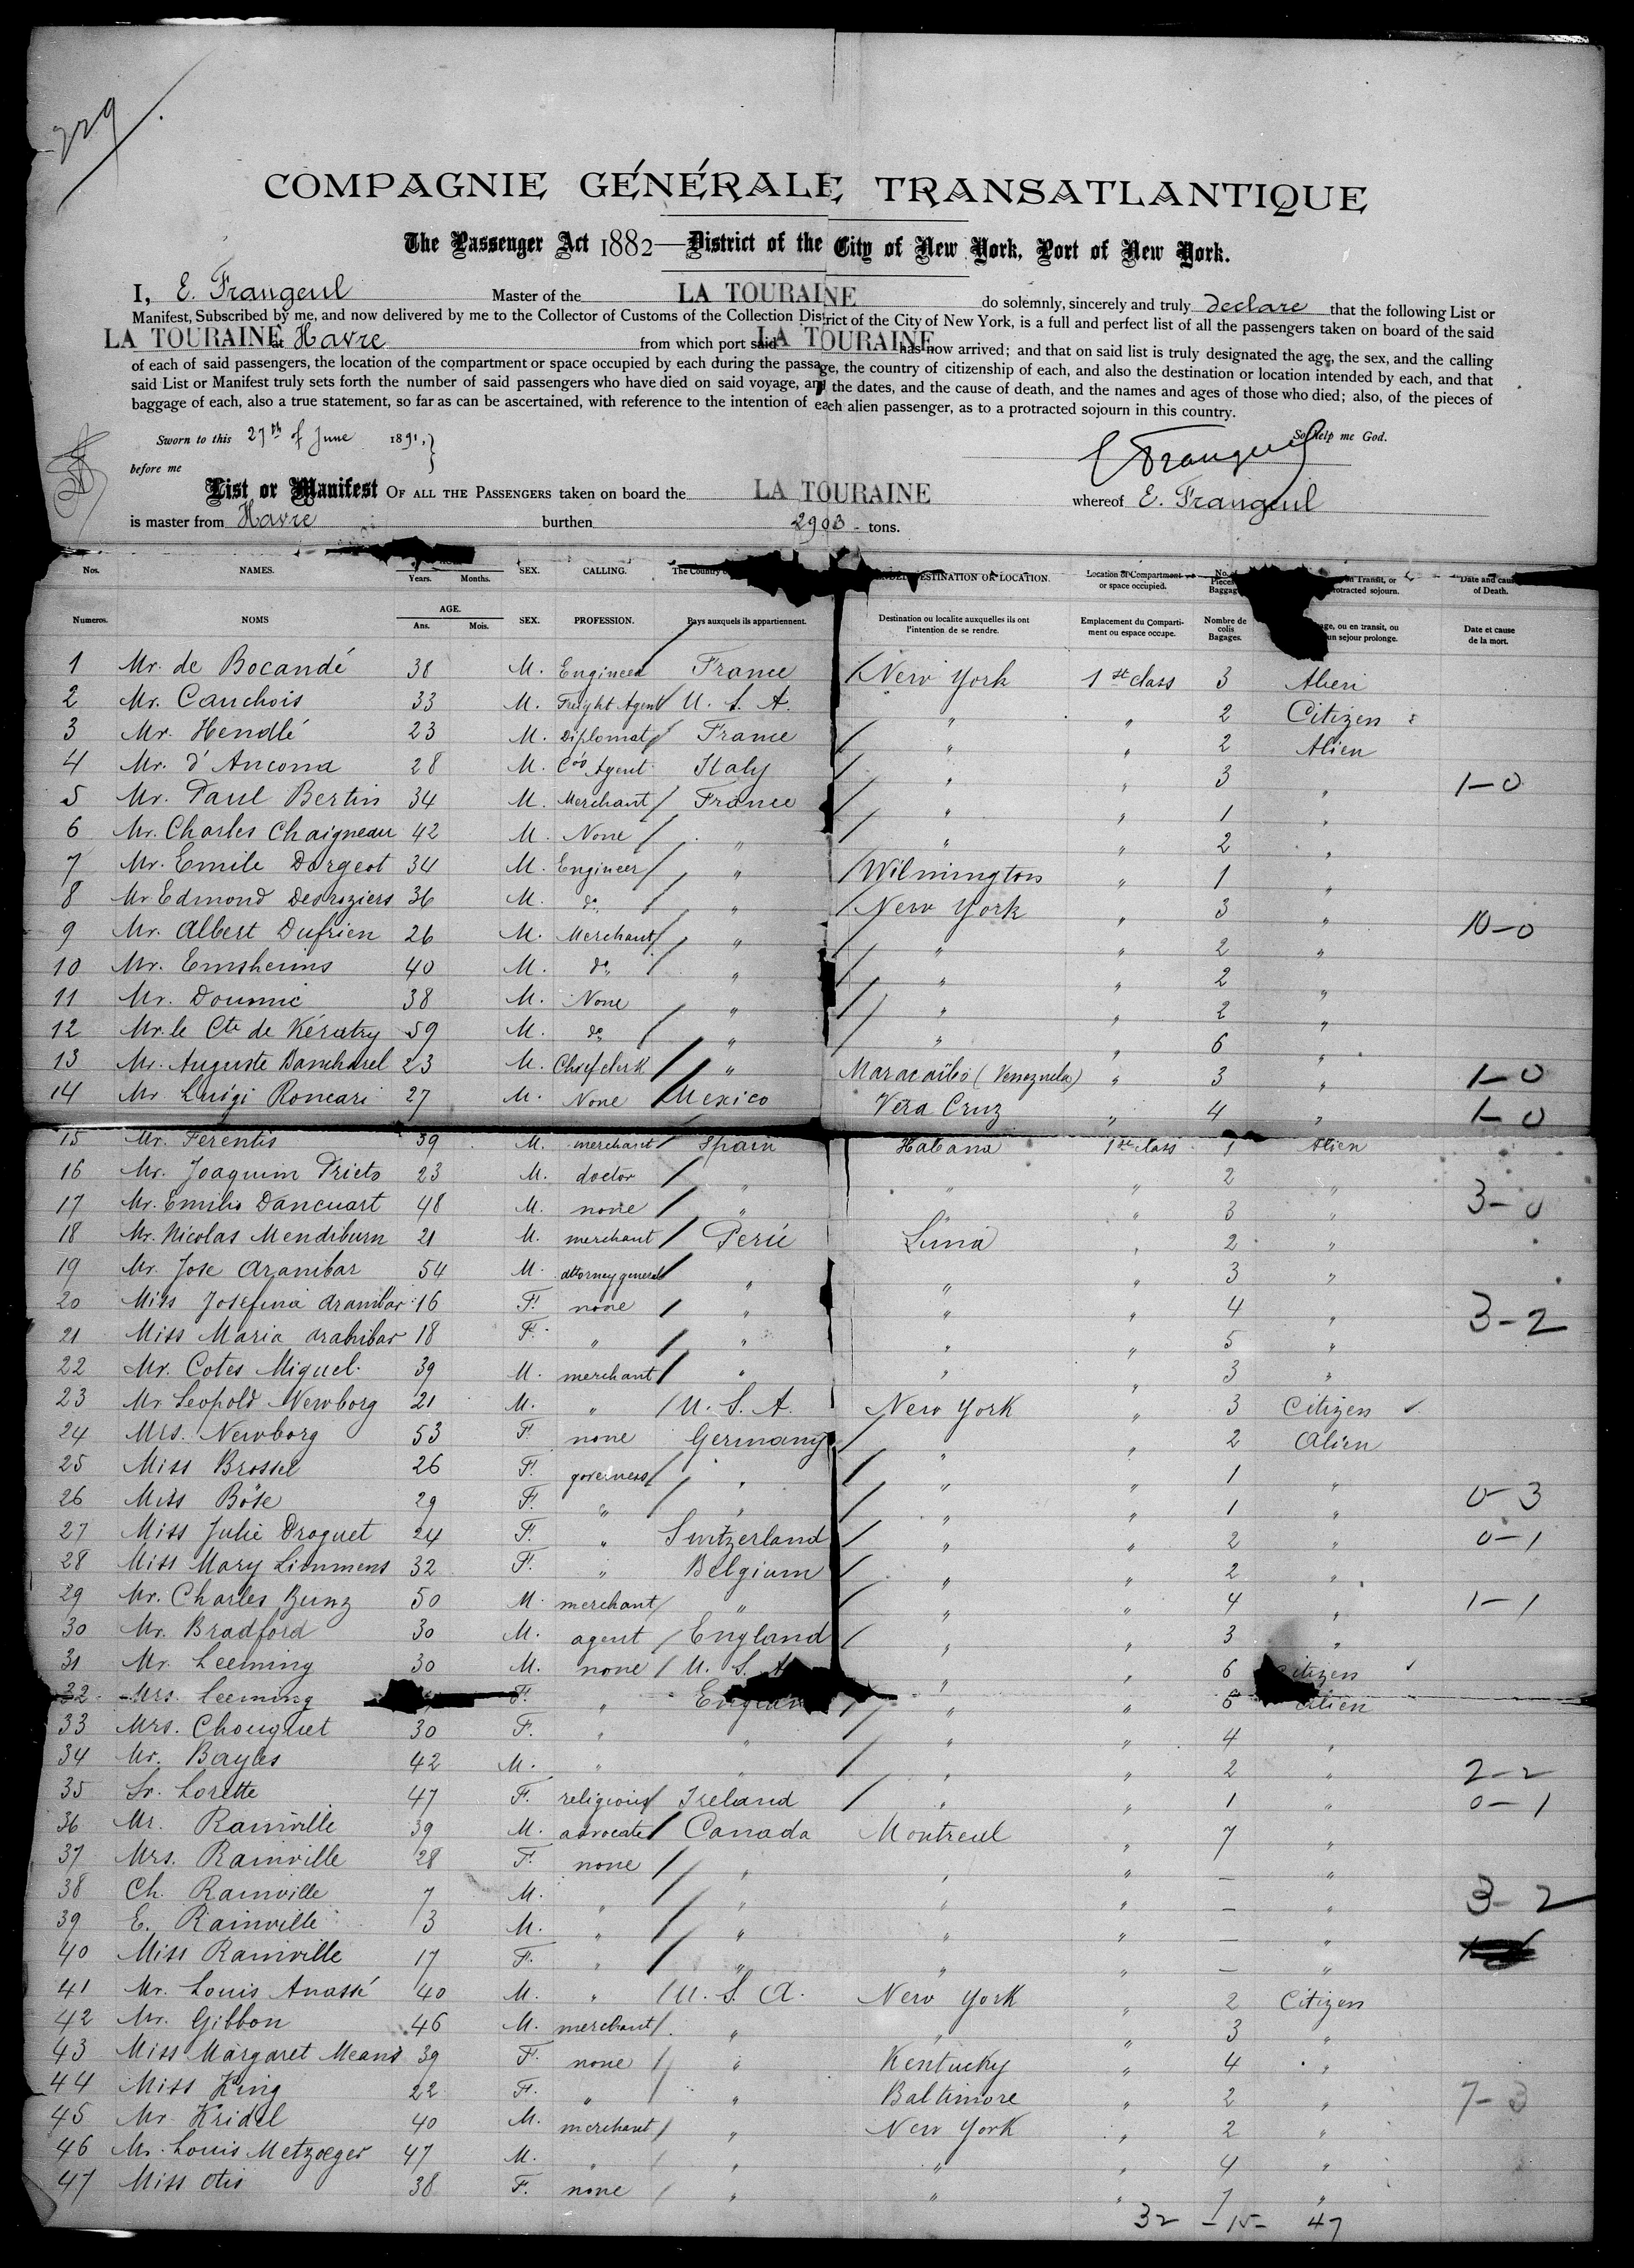 229
COMPAGNIE GÉNÉRALE TRANSATLANTIQUE
The Passenger Act 1882—District of the City of New York, Port of New York.
I, E. Frangeul Master of the LA TOURAINE do solemnly, sincerely and truly declare that the following List or
Manifest, Subscribed by me, and now delivered by me to the Collector of Customs of the Collection District of the City of New York, is a full and perfect list of all the passengers taken on board of the said
LA TOURAINE at Havre from which port said LA TOURAINE has now arrived; and that on said list is truly designated the age, the sex, and the calling
of each of said passengers, the location of the compartment or space occupied by each during the passage, the country of citizenship of each, and also the destination or location intended by each, and that
said List or Manifest truly sets forth the number of said passengers who have died on said voyage, and the dates, and the cause of death, and the names and ages of those who died; also, of the pieces of
baggage of each, also a true statement, so far as can be ascertained, with reference to the intention of each alien passenger, as to a protracted sojourn in this country.
Sworn to this 27th of June 1891, So help me God.
before me E Frangeul
List or Manifest OF ALL THE PASSENGERS taken on board the LA TOURAINE whereof E. Frangeul
is master from Havre burthen 2903 tons.
Nos. NAMES. Years. Months. SEX. CALLING. The Country DESTINATION OR LOCATION. Location of Compartment or space occupied. No. of Pieces Baggage in Transit, or protracted sojourn. Date and cause of Death.
Numeros. NOMS AGE. Ans. Mois. SEX. PROFESSION. Pays auxquels ils appartiennent. Destination ou localite auxquelles ils ont l'intention de se rendre. Emplacement du Compartiment ou espace occupe. Nombre de colis Bagages. ou en transit, ou un sejour prolonge. Date et cause de la mort.
1 Mr. de Bocandé 38 M. Engineer France New York 1st class 3 Alien
2 Mr. Cauchois 33 M. Freight Agent U. S. A. " " 2 Citizen
3 Mr. Hendlé 23 M. Diplomat France " " 2 Alien
4 Mr. d'Ancona 28 M. Co's Agent Italy " " 3 " 1-0
5 Mr. Paul Bertin 34 M. Merchant France " " 1 "
6 Mr. Charles Chaigneau 42 M. None " " " 2 "
7 Mr. Emile Dorgeot 34 M. Engineer " Wilmington " 1 "
8 Mr Edmond Desroziers 36 M. do " New York " 3 "
9 Mr. Albert Dufrien 26 M. Merchant " " " 2 " 10-0
10 Mr. Emsheims 40 M. do " " " 2 "
11 Mr. Doumic 38 M. None " " " 2 "
12 Mr. le Cte de Kératry 59 M. do " " " 6 "
13 Mr. Auguste 23 M. Chief clerk " Maracaïbo (Venezuela) " 3 " 1-0
14 Mr Luigi Roncari 27 M. None Mexico Vera Cruz " 4 " 1-0
15 Mr. Ferentis 39 M. merchant Spain Habana 1st class 1 Alien
16 Mr. Joaquim Prieto 23 M. doctor " " " 2 "
17 Mr. Emilio Dancuart 48 M. none " " " 3 " 3-0
18 Mr. Nicolas Mendiburn 21 M. merchant Perú Lima " 2 "
19 Mr. Jose Aranibar 54 M. attorney general " " " 3 "
20 Miss Josefina Aranibar 16 F. none " " " 4 " 3-2
21 Miss Maria Aranibar 18 F. " " " " 5 "
22 Mr. Cotes Miguel 39 M. merchant " " " 3 "
23 Mr Leopold Newborg 21 M. " U. S. A. New York " 3 Citizen
24 Mrs. Newborg 53 F. none Germany " " 2 Alien
25 Miss Brossel 26 F. governess " " " 1 "
26 Miss Böse 29 F. " " " " 1 " 0-3
27 Miss Julie Droguet 24 F. " Switzerland " " 2 " 0-1
28 Miss Mary Liemmens 32 F. " Belgium " " 2 "
29 Mr. Charles Bunz 50 M. merchant " " " 4 " 1-1
30 Mr. Bradford 30 M. agent England " " 3 "
31 Mr. Leeming 30 M. none U. S. A " " 6 Citizen
32 Mrs. Leeming F. " England " " 6 Alien
33 Mrs. Chouquet 30 F. " " " " 4 "
34 Mr. Bayles 42 M. " " " " 2 " 2-2
35 Sr. Lorette 47 F. religious Ireland " " 1 " 0-1
36 Mr. Rainville 39 M. advocate Canada Montreal " 7 "
37 Mrs. Rainville 28 F. none " " " — "
38 Ch. Rainville 7 M. " " " " — " 3-2
39 E. Rainville 3 M. " " " " — "
40 Miss Rainville 17 F. " " " " — "
41 Mr. Louis Anassé 40 M. " U. S. A. New York " 2 Citizen
42 Mr. Gibbon 46 M. merchant " " " 3 "
43 Miss Margaret Means 39 F. none " Kentucky " 4 "
44 Miss King 22 F. " " Baltimore " 2 " 7-3
45 Mr. Kridel 40 M. merchant " New York " 2 "
46 Mr. Louis Metzoeger 47 M. " " " " 4 "
47 Miss Otis 38 F. none " " " 7 "
32 - 15 - 47